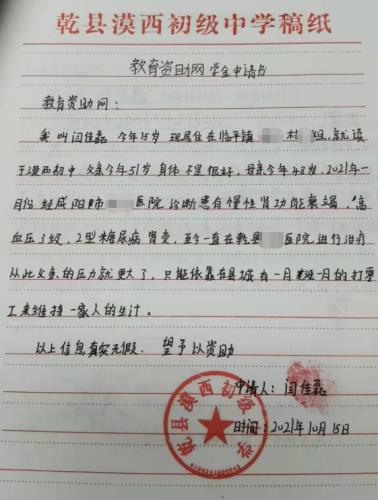 乾县漠西初级中学稿纸
教育资助网 学金申请书
教育资助网:
我叫闫佳磊 今年15岁 现居住在临平镇 村 组,就读
于漠西初中 父亲今年51岁 身体不是很好,母亲今年48岁,2021年一
月份 经咸阳市 医院 诊断患有慢性肾功能衰竭,高
血压3级,2型糖尿病肾变,至今一直在乾县 医院进行治疗
从此父亲的压力就更大了,只能依靠在县城有一月没一月的打零
工来维持一家人的生计。
以上信息真实无假. 望予以资助
申请人:闫佳磊
时间:2021年10月15日
乾县漠西初级